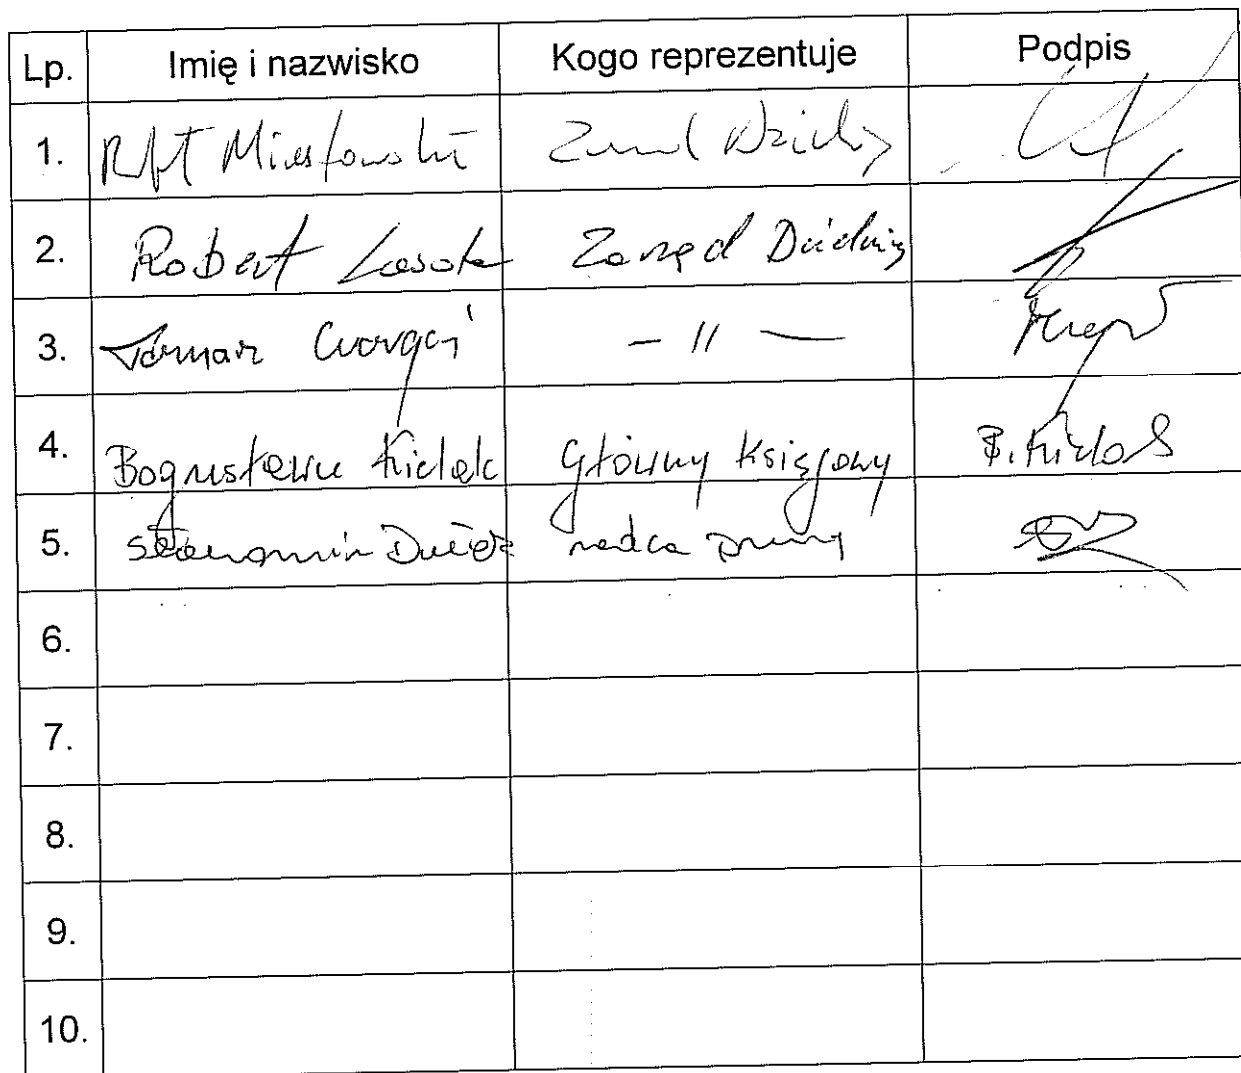 Lp. Imię i nazwisko Kogo reprezentuje Podpis
1. Zarząd Dzielnicy
2. Robert Lasota Zarząd Dzielnicy
3. Tomasz — 11 —
4. Bogusława Kielak Główny Księgowy B.
5. Sławomir radca prawny
6.
7.
8.
9.
10.